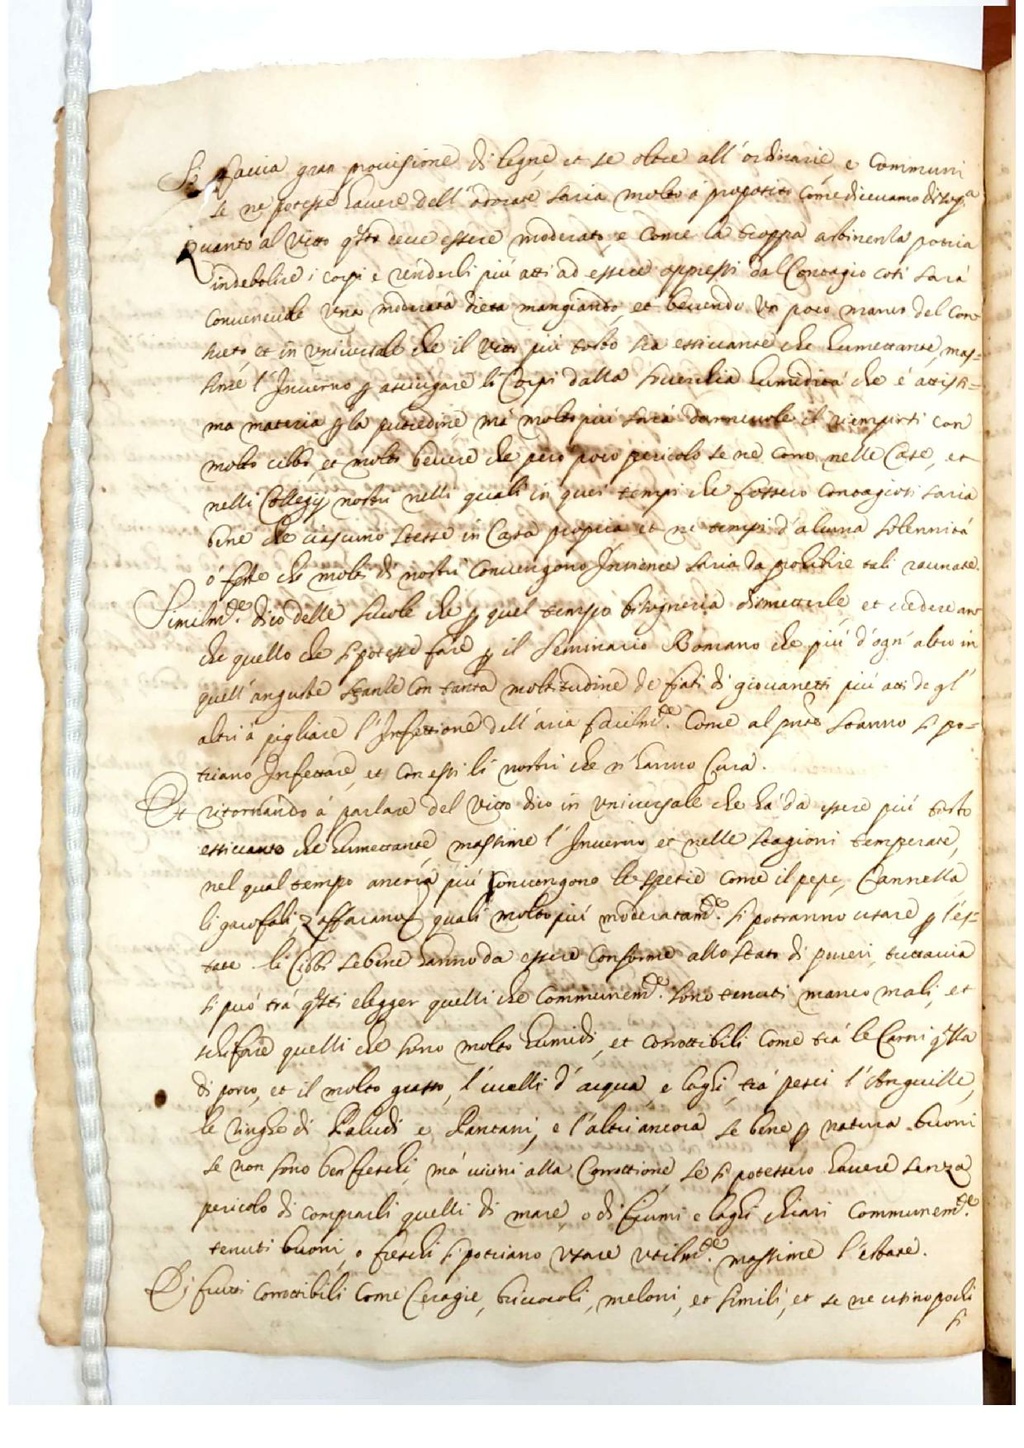 Si faccia gran provisione di legne, et se oltre all'ordinarie, e Communi
se ne potesse havere dell'odorate saria molto à proposito come dicevamo di sopra
Quanto al vitto qsto deve essere moderato, e Come la troppa astinenza potria
indebolire i corpi e renderli più atti ad essere oppressi dal Contagio così sarà
Convenevole una moderata dieta mangiando, et bevendo un poco manco del Con=
sueto, et in universale che il vitto più tosto sia essiccante che humettante, mas=
sime l'Inverno p asciugare li Corpi dalla soverchia humidità che è attissi=
ma materia p la putredine, mà molto più sarà dannevole il riempirsi con
molto cibbo, et molto bevere che però poco pericolo se ne corre nelle Case, et
nelli Collegij nostri nelli quali in quei tempi che fossero Contagiosi saria
bene che ciascuno stesse in Casa propria et ne tempi d'alcuna solennità
ò feste che molti di nostri Convengono Insieme saria da prohibire tali raunate.
Similmte. dico delle scuole che p quel tempo bisogneria dismetterle, et vedere an=
che quello che si potesse fare p il Seminario Romano che più d'ogn'altro in
quell'anguste stanze Con tanta moltitudine de fiati di giovanetti più atti degl'
altri à pigliare l'Infettione dell'aria facilmte. Come al pnte stanno si po=
triano Infettare, et Con essi li nostri che n'hanno Cura.
Et ritornando à parlare del vitto dico in universale che hà da essere più tosto
essiccante che humettante massime l'Inverno et nelle stagioni temperate,
nel qual tempo ancora più Convengono le spetie come il pepe, Cannella,
li garofali, Zaffarano quali molto più moderatamte. si potranno usare p l'es=
tate. li Cibbi sebene hanno da essere Conforme allo stato di poveri, tuttavia
si può trà qsti elegger quelli che Communemte. sono tenuti manco mali, et
schifare quelli che sono molto humidi, et corrottibili Come trà le Carni qlla
di porco, et il molto grasso, l'ucelli d'acqua, e laghi, trà pesci l'Anguille,
le Tinghe di Paludi, e Pantani, e l'altri ancora se bene p natura buoni
se non sono ben freschi, mà vicini alla Corrottione, se si potessero havere senza
pericolo di comprarli quelli di mare, o di fiumi e laghi chiari Communemte.
tenuti buoni, o freschi si potriano usare utilmte. massime l'estate.
Di frutti Corrottibili Come Ceragie, briccocoli, meloni, et simili, et se ne usino pochi
si